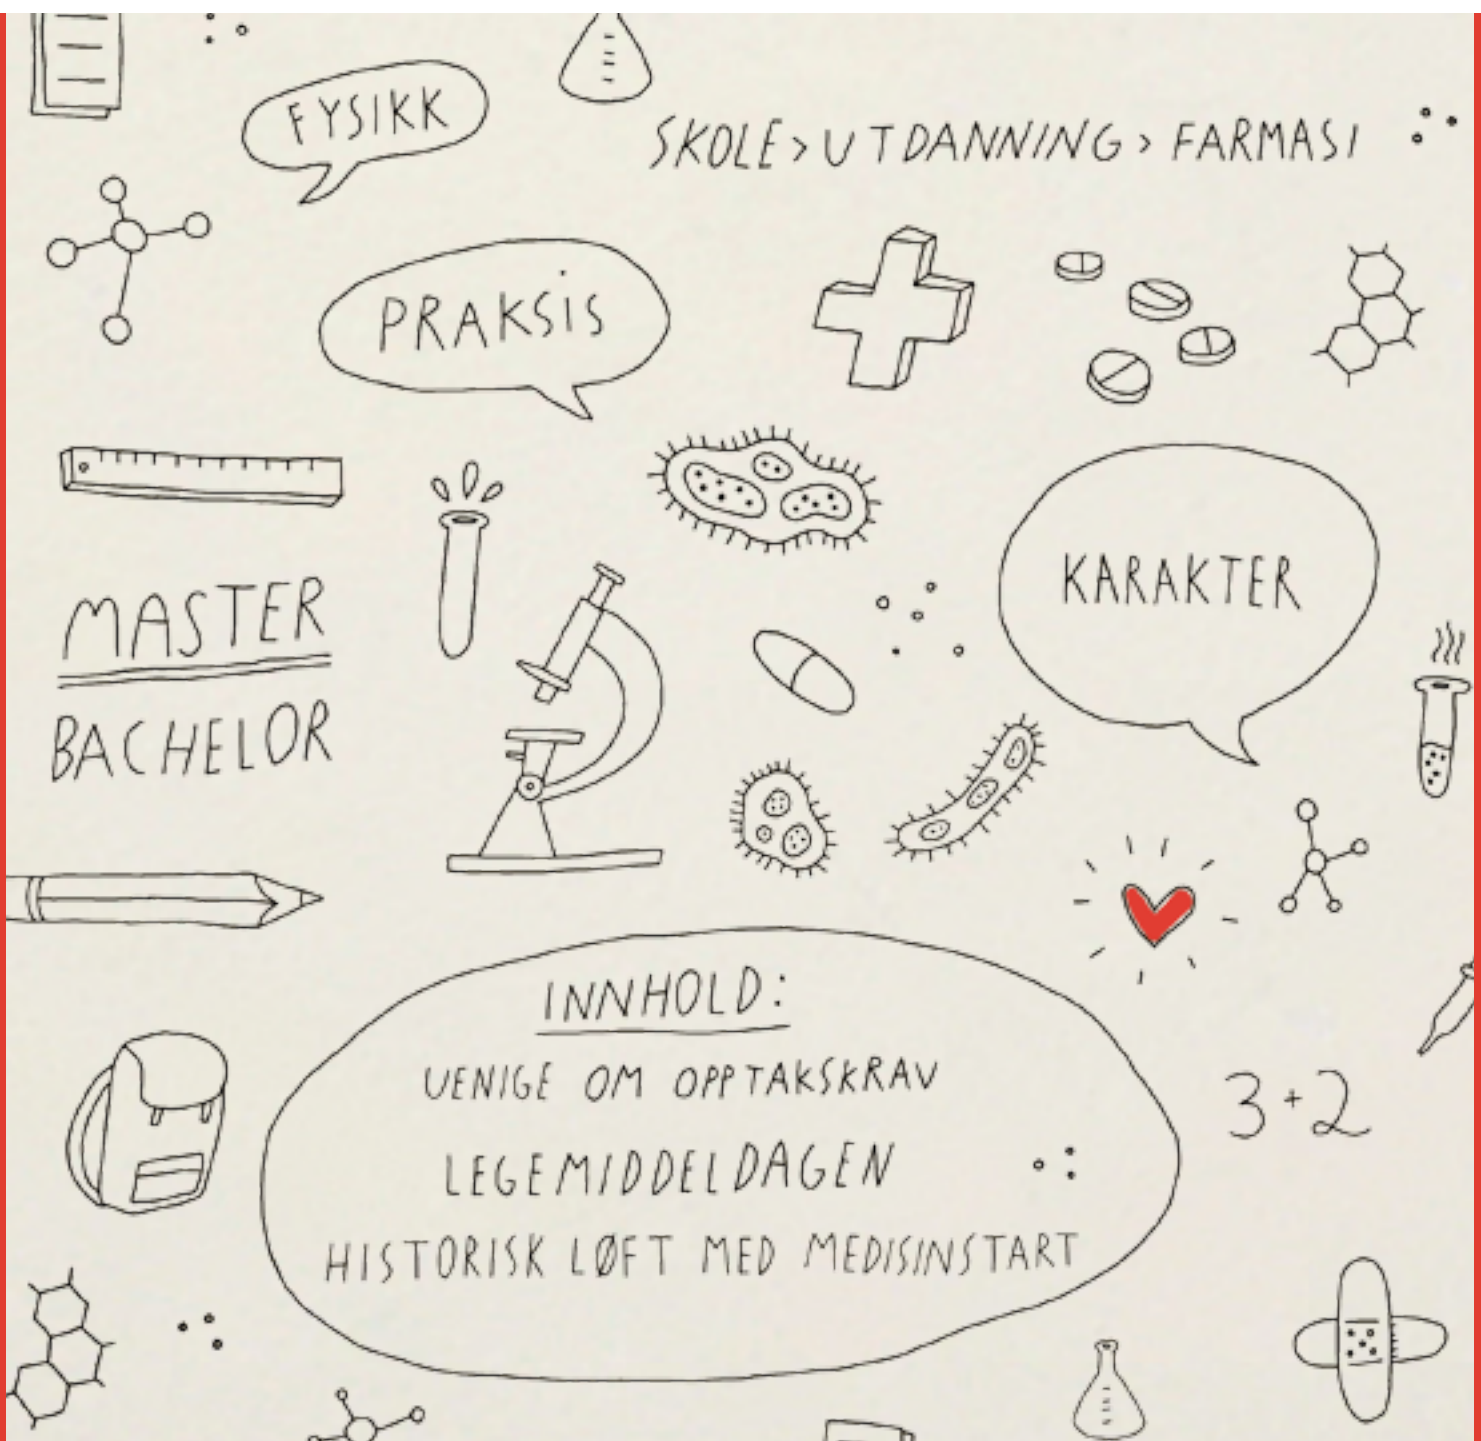 FYSIKK
SKOLE > UTDANNING > FARMASI
PRAKSIS
KARAKTER
MASTER
BACHELOR
INNHOLD:
UENIGE OM OPPTAKSKRAV
LEGEMIDDELDAGEN
HISTORISK LØFT MED MEDISINSTART
3+2